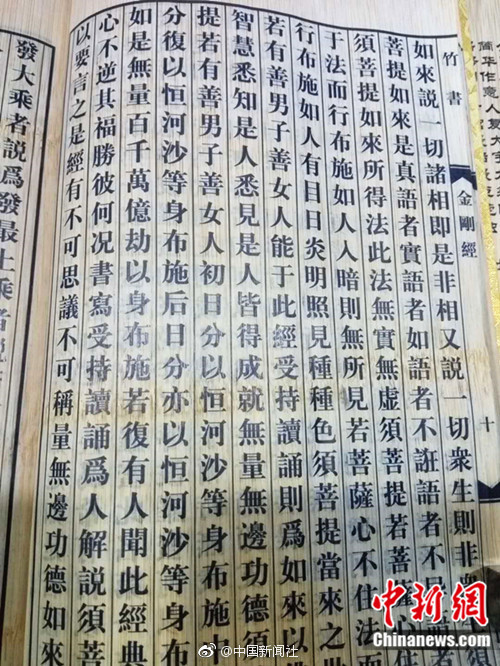 竹書 金剛經 十
如來說一切諸相即是非相又說一切衆生則非衆
菩提如來是真語者實語者如語者不誑語者不異
須菩提如來所得法此法無實無虛須菩提若菩薩心
于法而行布施如人入暗則無所見若菩薩心不住法
行布施如人有目日炎明照見種種色須菩提當來之世
若有善男子善女人能于此經受持讀誦則爲如來以
智慧悉知是人悉見是人皆得成就無量無邊功德須
提若有善男子善女人初日分以恒河沙等身布施中
分復以恒河沙等身布施后日分亦以恒河沙等身布
如是無量百千萬億劫以身布施若復有人聞此經典
心不逆其福勝彼何况書寫受持讀誦爲人解說須菩
以要言之是經有不可思議不可稱量無邊功德如來
發大乘者說爲發最上乘者說
中新网
Chinanews.com
@中国新闻社